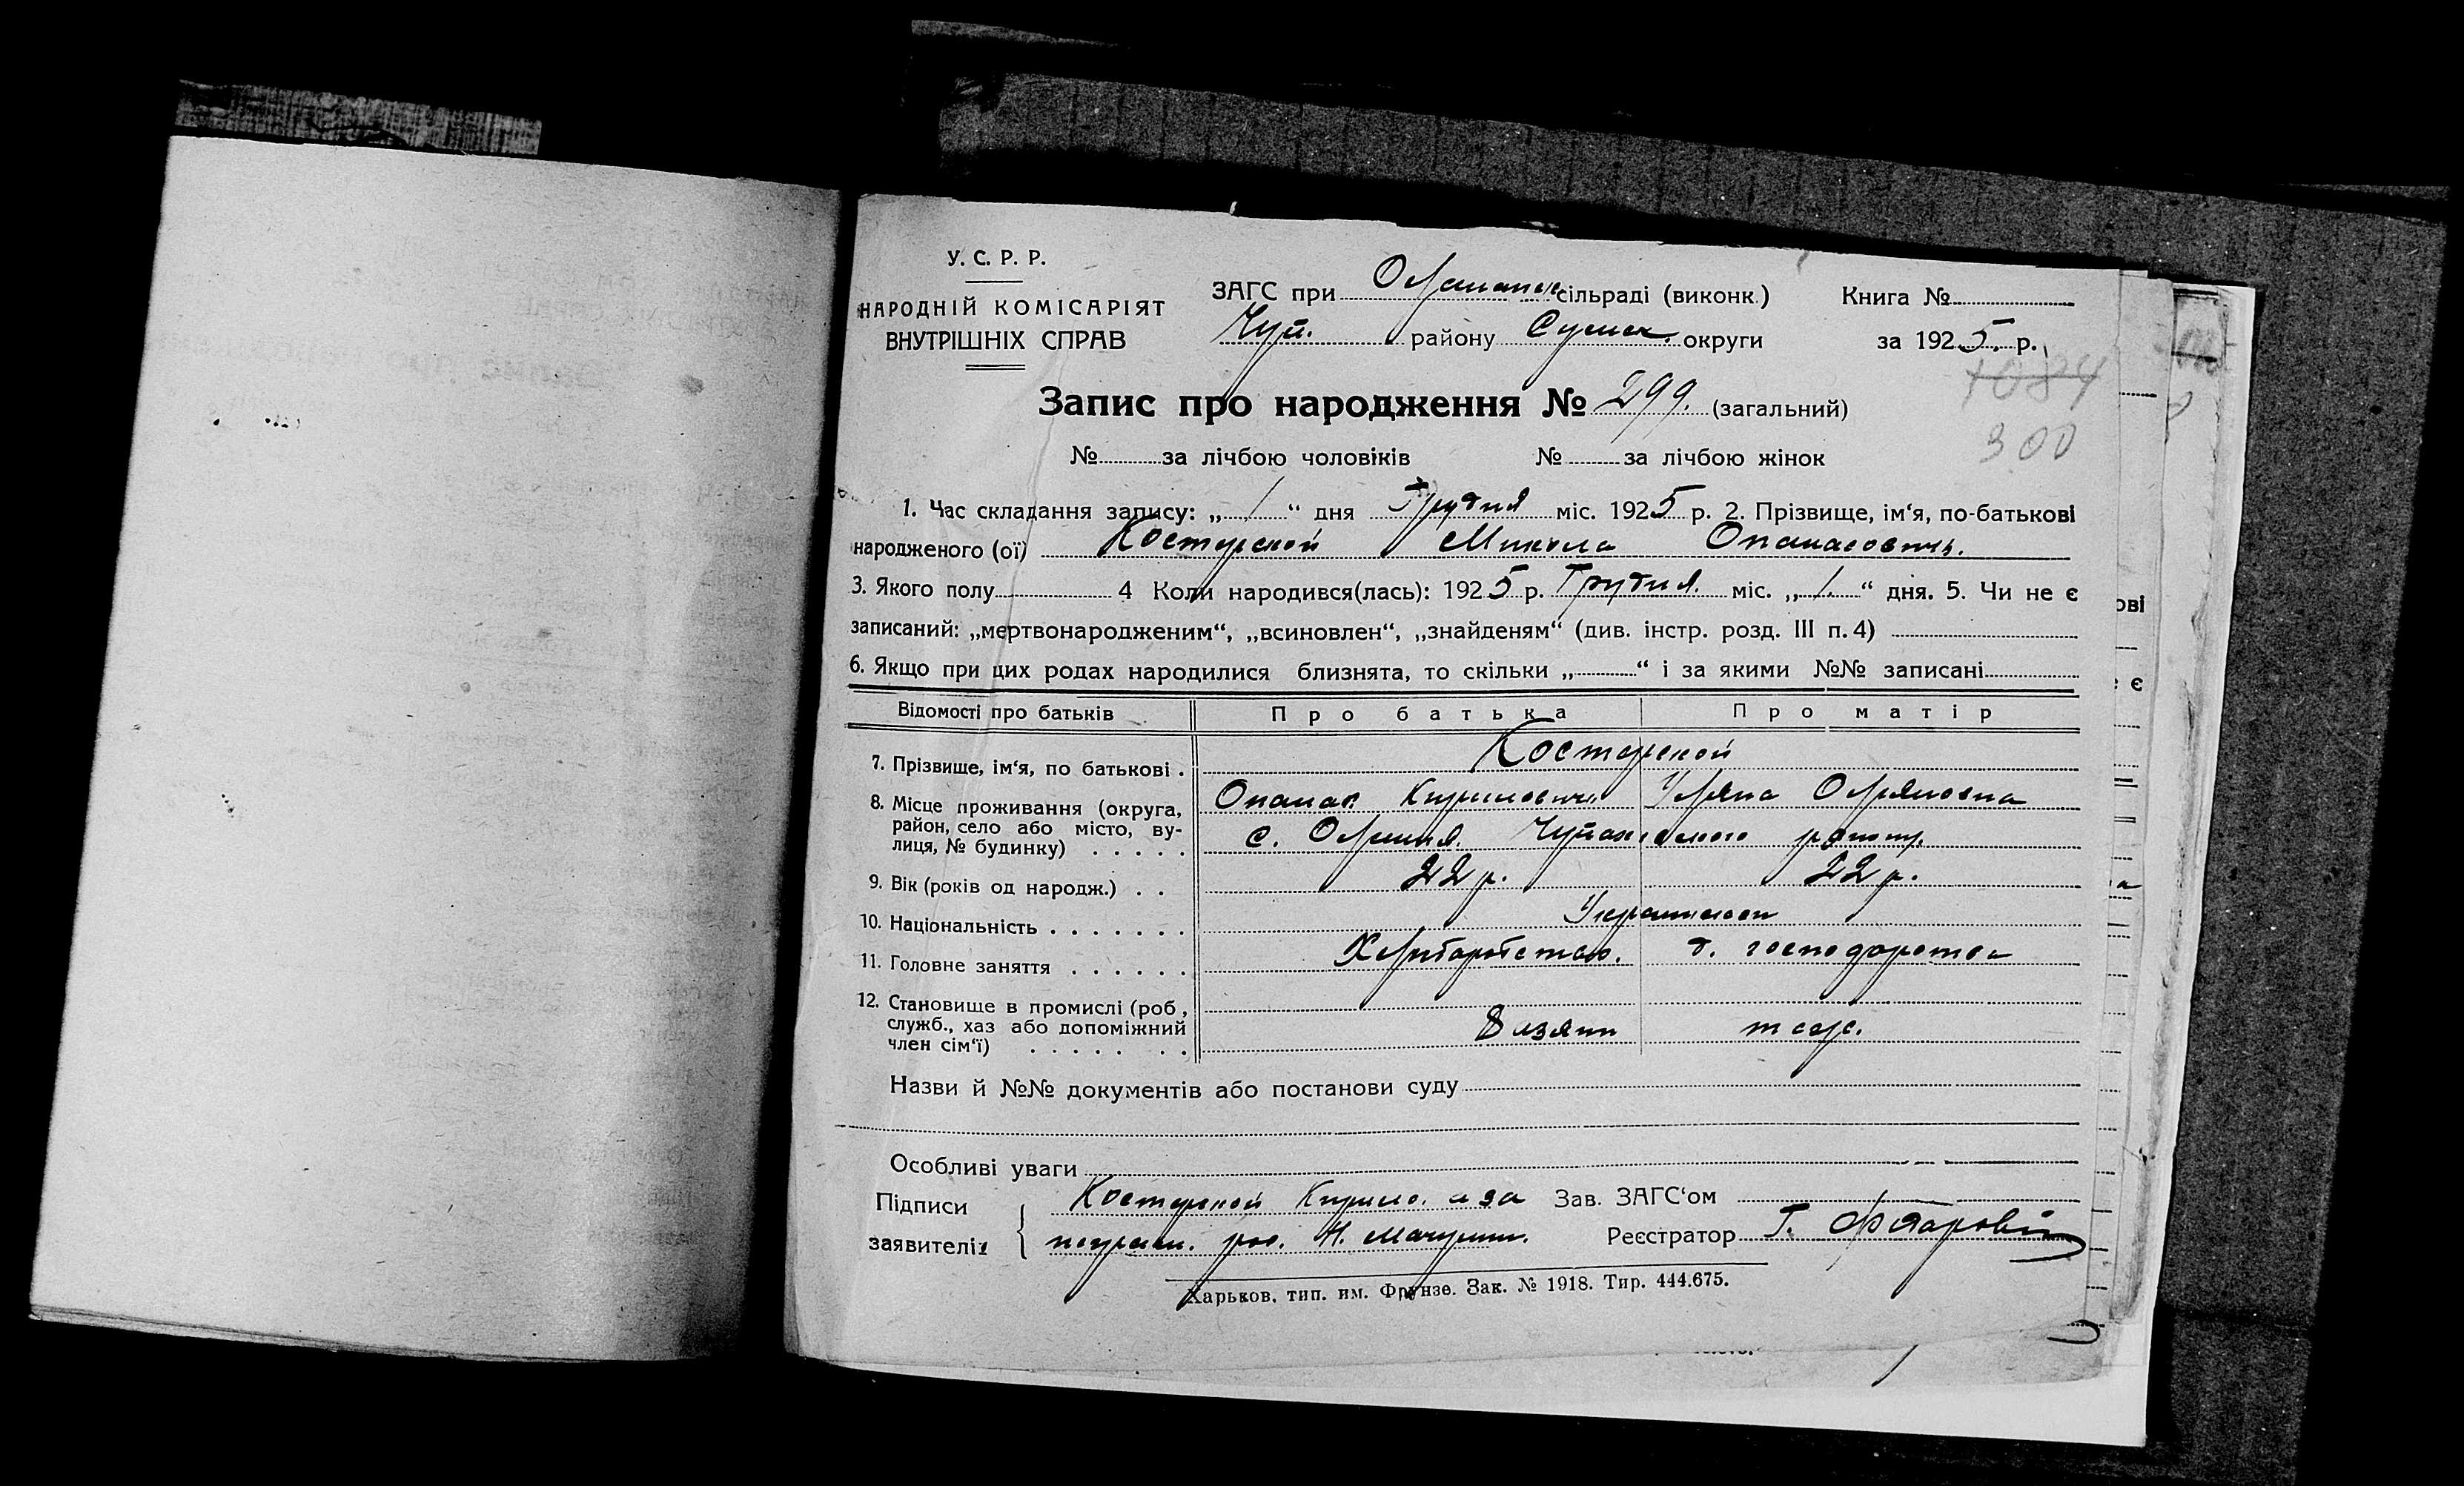 У. С. Р. Р.
НАРОДНІЙ КОМІСАРІЯТ
ВНУТРІШНІХ СПРАВ
ЗАГС при сільраді (виконк.)
Чуп. району Сумск. округи
Книга №
за 1925. р.
1084
300
Запис про народження № 299. (загальний)
№ за лічбою чоловіків № за лічбою жінок
1. Час складання запису: „ 1 “ дня Грудня міс. 1925 р. 2. Прізвище, ім‘я, по-батькові
народженого (ої) Костерской Микола Опанасович.
3. Якого полу 4 Коли народився(лась): 1925 р. Грудня. міс. „ 1. “ дня. 5. Чи не є
записаний: „мертвонародженим“, „всиновлен“, „знайденям“ (див. інстр. розд. III п. 4)
6. Якщо при цих родах народилися близнята, то скільки „ “ і за якими №№ записані
Відомості про батьків Про батька Про матір
7. Прізвище, ім‘я, по батькові . Костерской
8. Місце проживання (округа, Опанас Кирилович
район, село або місто, ву-
лиця, № будинку) . . . . . с.
9. Вік (років од народж.) . . 22 р. 22 р.
10. Національність . . . . . . .
11. Головне заняття . . . . . . Хліборобство. д. господарства
12. Становище в промислі (роб,
служб., хаз або допоміжний
член сім‘ї) . . . . . . .
Назви й №№ документів або постанови суду
Особливі уваги
Підписи Костерской Кирило. а за Зав. ЗАГС‘ом
заявителів неграм. рос. Н. Реєстратор Г.
Харьков, тип. им. Фрунзе. Зак. № 1918. Тир. 444.675.